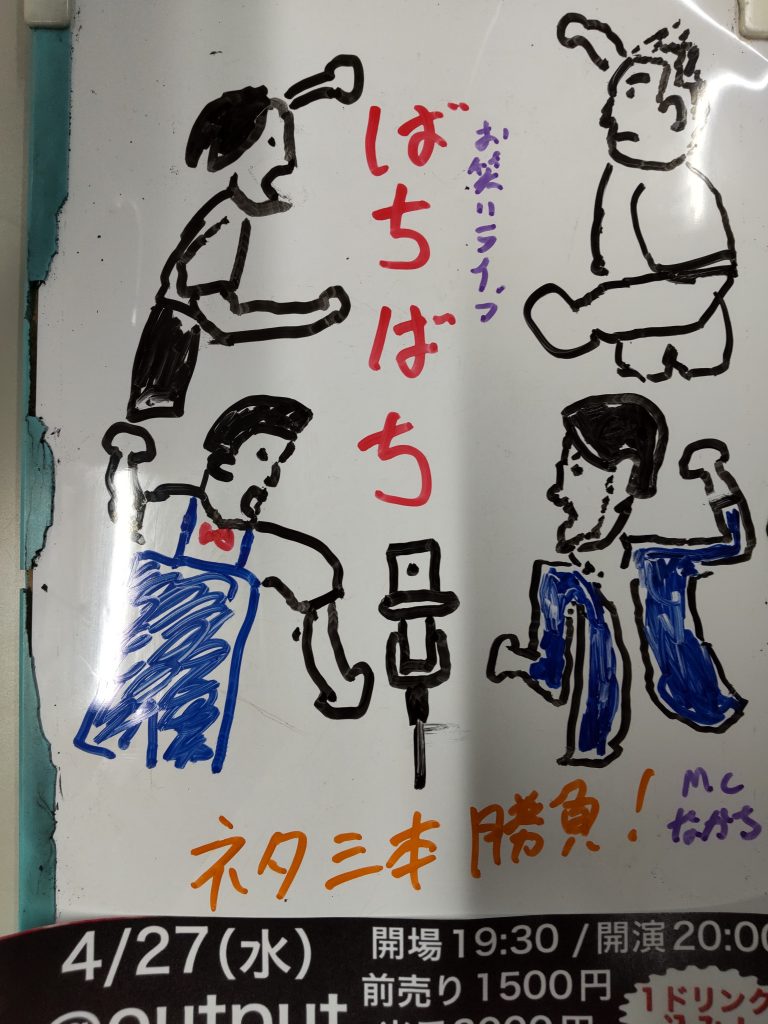 ばちばち
お笑いライブ
ネタ三本勝負!
MC
なかち
4/27(水)
開場19:30/開演20:00
前売り1500円
@output
1ドリンク